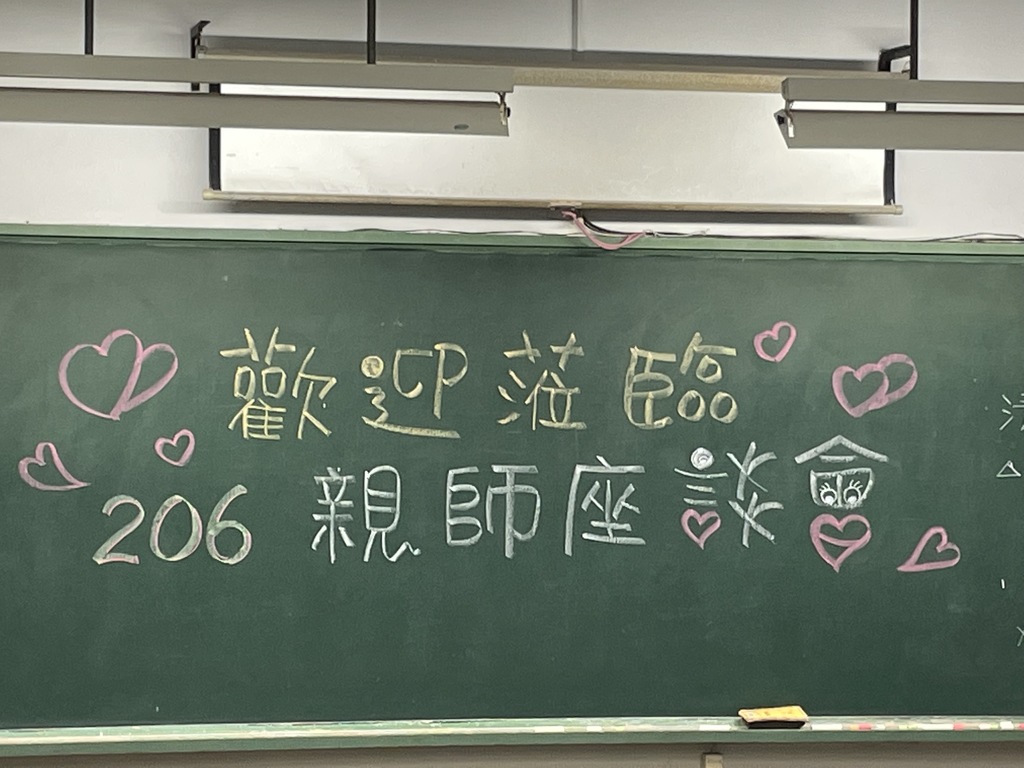 歡迎蒞臨
206 親師座談會